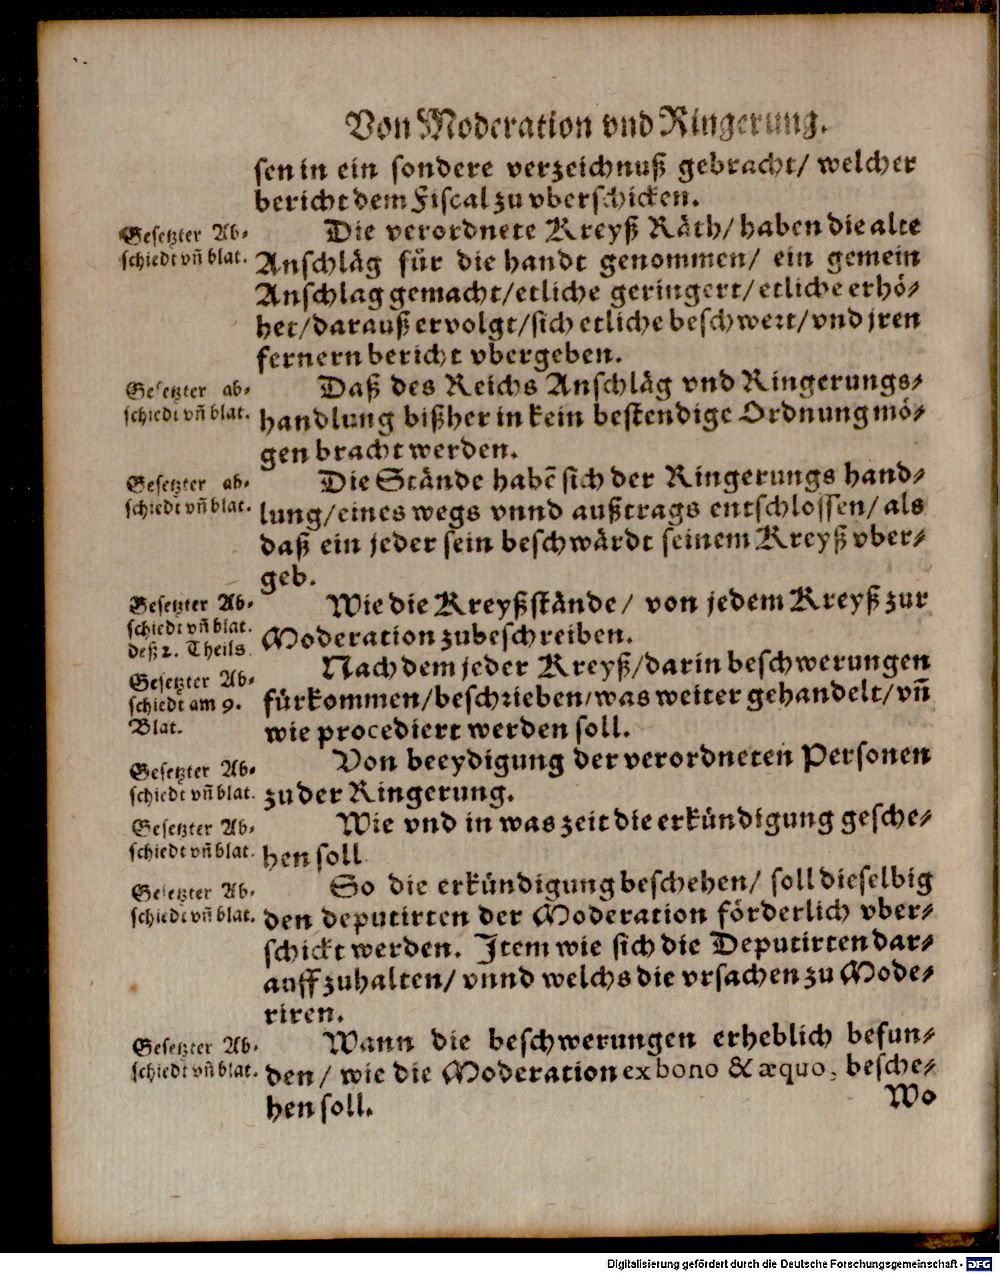 Von Moderation vnd Ringerung.
sen in ein sondere verzeichnuß gebracht/ welcher
bericht dem Fiscal zu vberschicken.
Gesetzter Ab-
schiedt vñ blat.
Die verordnete Kreyß Räth/ haben die alte
Anschläg für die handt genommen/ ein gemein
Anschlag gemacht/ etliche geringert/ etliche erhö-
het/ darauß ervolgt/ sich etliche beschwert/ vnd jren
fernern bericht vbergeben.
Gesetzter ab-
schiedt vñ blat.
Daß des Reichs Anschläg vnd Ringerungs-
handlung bißher in kein bestendige Ordnung mö-
gen bracht werden.
Gesetzter ab-
schiedt vñ blat.
Die Stände habē sich der Ringerungs hand-
lung/ eines wegs vnnd außtrags entschlossen/ als
daß ein jeder sein beschwärdt seinem Kreyß vber-
geb.
Gesetzter Ab-
schiedt vñ blat.
deß 2. Theils
Wie die Kreyßstände/ von jedem Kreyß zur
Moderation zubeschreiben.
Gesetzter Ab-
schiedt am 9.
Blat.
Nach dem jeder Kreyß/ darin beschwerungen
fürkommen/ beschrieben/ was weiter gehandelt/ vñ
wie procediert werden soll.
Gesetzter Ab-
schiedt vñ blat.
Von beeydigung der verordneten Personen
zu der Ringerung.
Gesetzter Ab-
schiedt vñ blat.
Wie vnd in was zeit die erkündigung gesche-
hen soll
Gesetzter Ab-
schiedt vñ blat.
So die erkündigung beschehen/ soll dieselbig
den deputirten der Moderation förderlich vber-
schickt werden. Item wie sich die Deputirten dar-
auff zuhalten/ vnnd welchs die vrsachen zu Mode-
riren.
Gesetzter Ab-
schiedt vñ blat.
Wann die beschwerungen erheblich befun-
den/ wie die Moderation ex bono & æquo, besche-
hen soll.
Wo
Digitalisierung gefördert durch die Deutsche Forschungsgemeinschaft - DFG